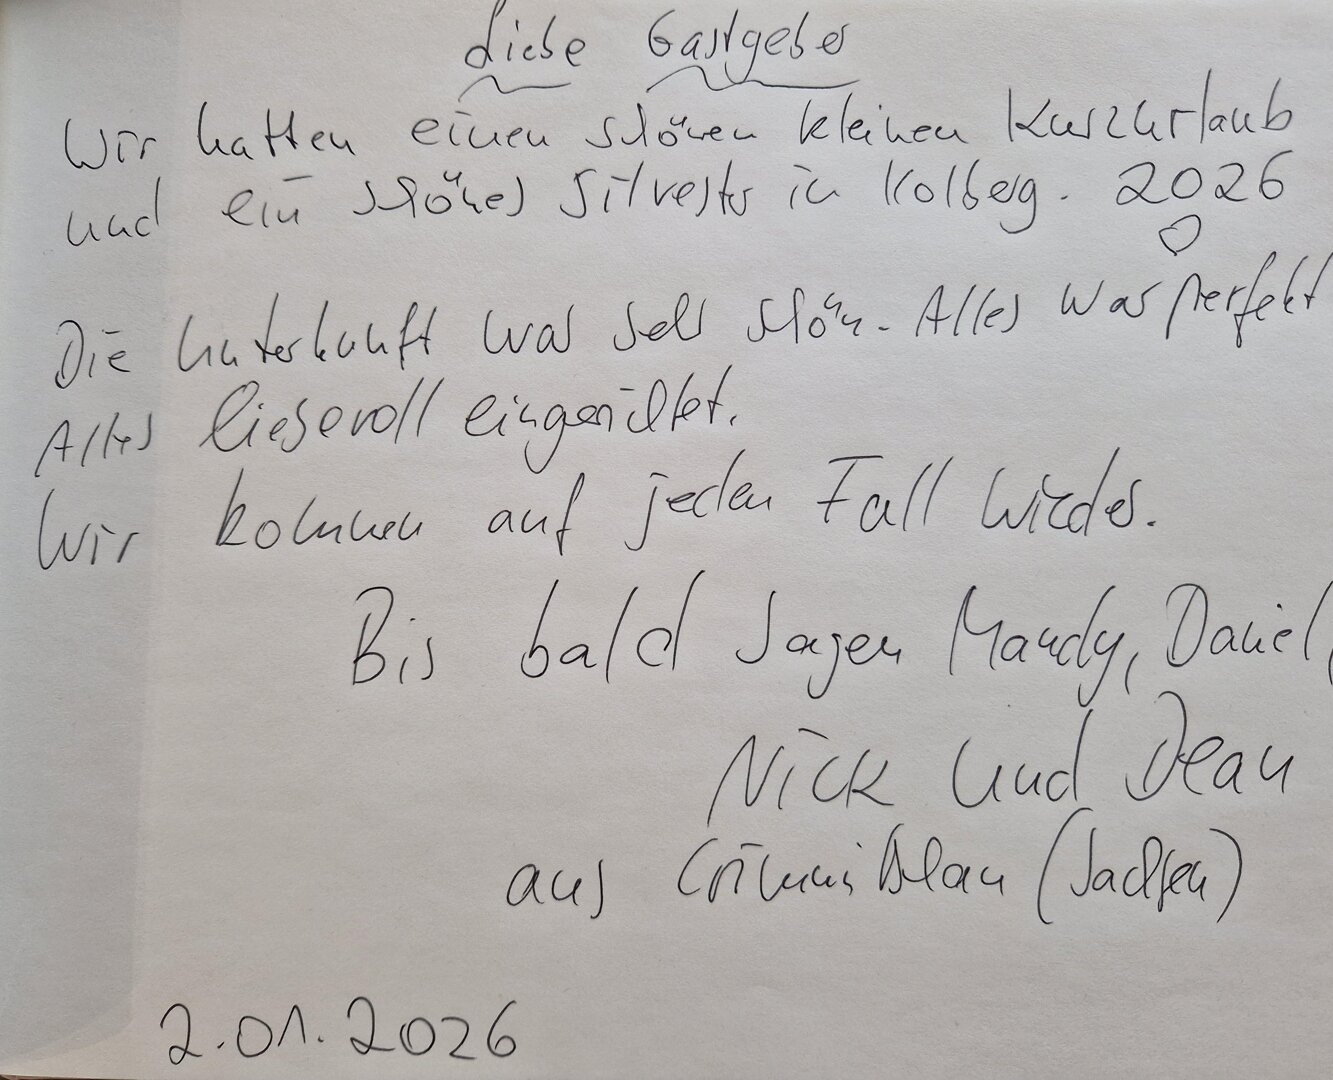 Liebe Gastgeber
Wir hatten einen schönen kleinen Kurzurlaub
und ein schönes Silvester in Kolberg. 2026
Die Unterkunft war sehr schön. Alles war perfekt
Alles liebevoll eingerichtet.
Wir kommen auf jeden Fall wieder.
Bis bald sagen Mandy, Daniel,
Nick und Dean
aus Crimmitschau (Sachsen)
2.01.2026